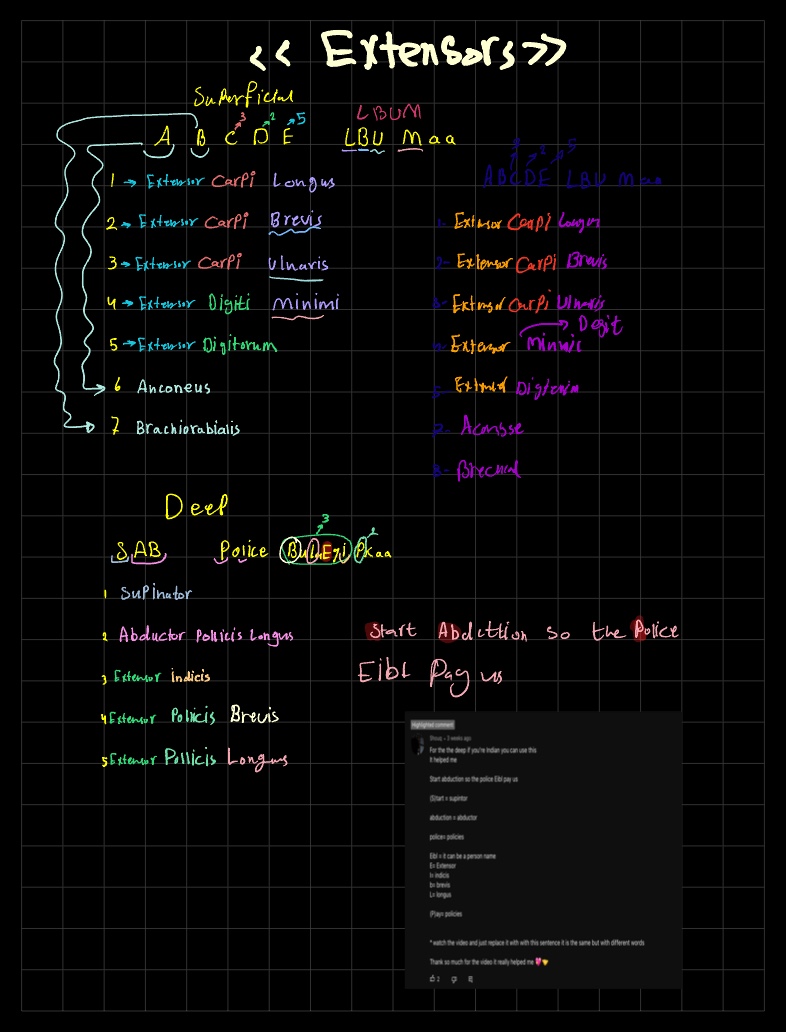 << Extensors >>
Superficial
LBUM
3 2 5
A B C D E LBU Maa
1 → Extensor Carpi Longus
2 → Extensor Carpi Brevis
3 → Extensor Carpi Ulnaris
4 → Extensor Digiti Minimi
5 → Extensor Digitorum
6 Anconeus
7 Brachiorabialis
ABCDE LBU Maa
Extensor Carpi Longus
Extensor Carpi Brevis
Extensor Carpi Ulnaris
Degit
Extensor
Extensor
Deep
3 2
SAB Police BuLEgi Pkaa
1 Supinator
2 Abductor Pollicis Longus
3 Extensor indicis
4 Extensor Pollicis Brevis
5 Extensor Pollicis Longus
Start Abdcttion so the Police
Eibl Pag us
Highlighted comment
Shouq • 3 weeks ago
For the the deep if you're Indian you can use this
It helped me
Start abduction so the police Eibl pay us
(S)tart = supintor
abduction = abductor
police= policies
Eibl = It can be a person name
E= Extensor
I= indicis
b= brevis
L= longus
(P)ay= policies
* watch the video and just replace it with with this sentence it is the same but with different words
Thank so much for the video it really helped me
2